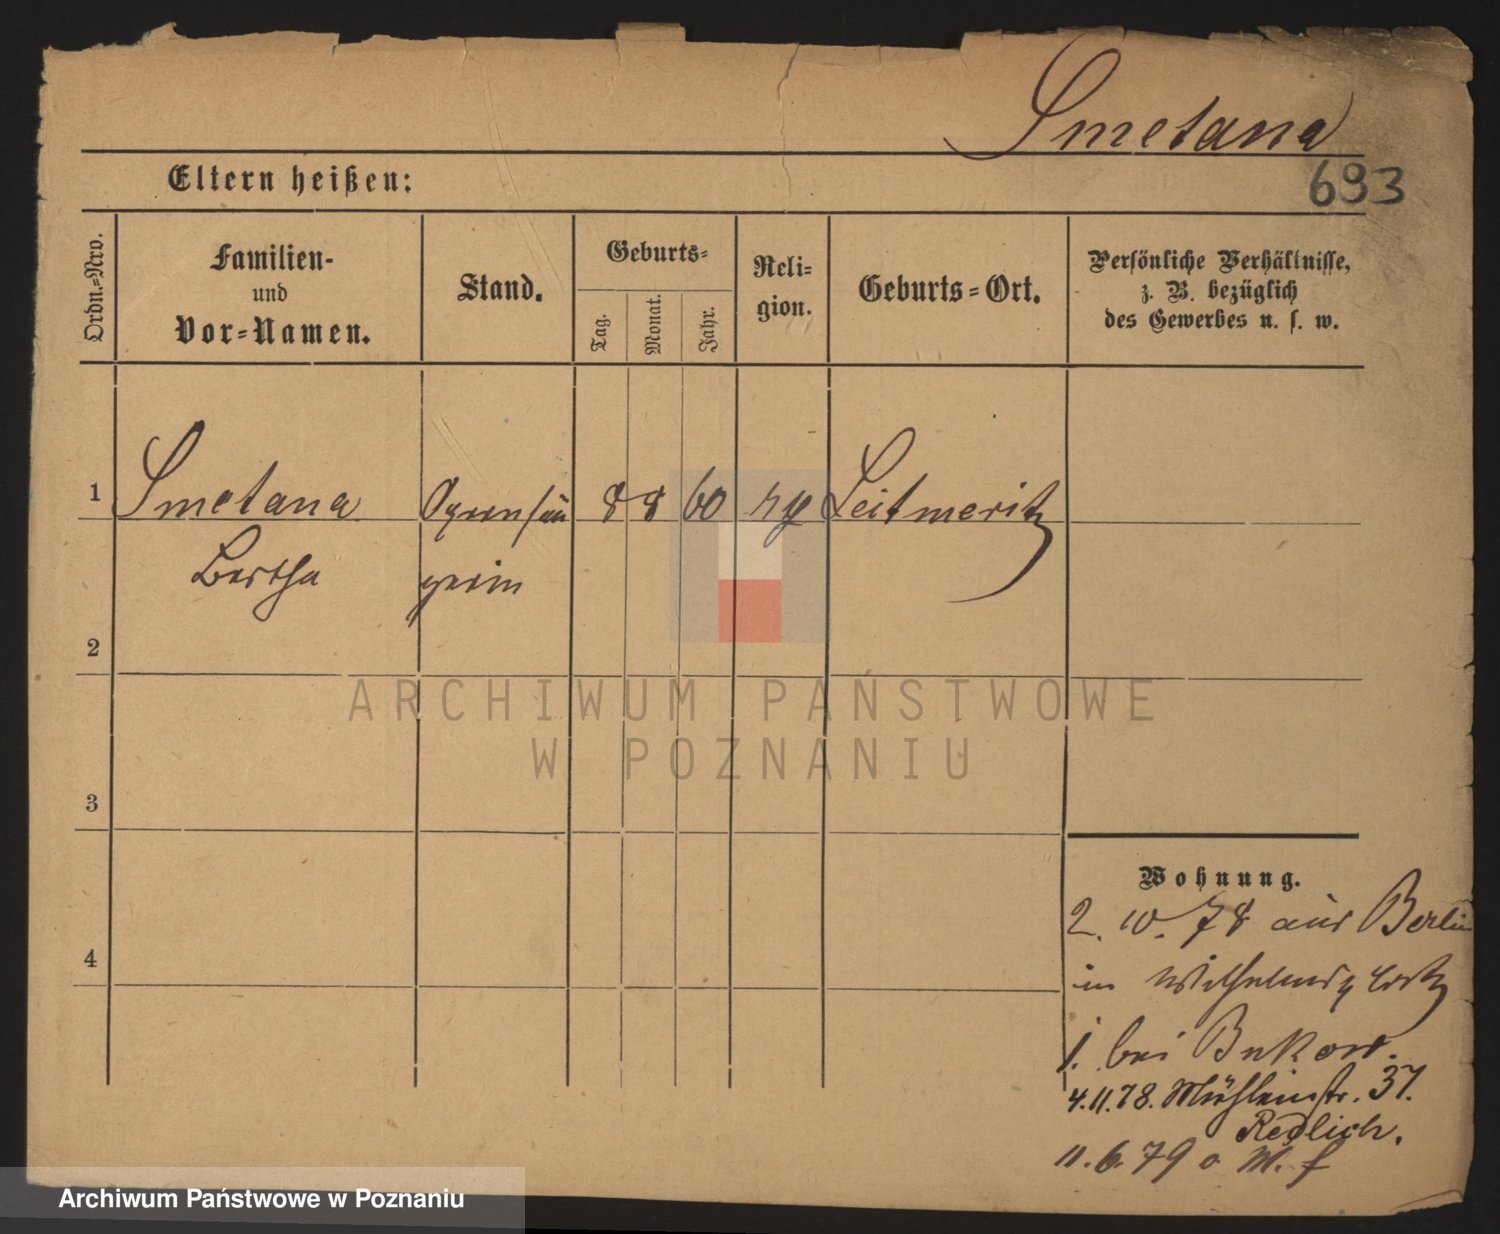 Smetana
693
Eltern heißen:
Ordn.-Nro.
Familien-
und
Vor-Namen.
Stand.
Geburts-
Tag.
Monat.
Jahr.
Reli-
gion.
Geburts-Ort.
Persönliche Verhältnisse,
z. B. bezüglich
des Gewerbes u. s. w.
1 Smetana Opernsän 8 8 60 Leitmeritz
Bertha gerin
2
3
4
Wohnung.
2. 10. 78 aus Berlin
in Wilhelmsplatz
1. bei Bukow.
4.11.78. Mühlenstr. 37.
Redlich.
11. 6. 79
ARCHIWUM PAŃSTWOWE
W POZNANIU
Archiwum Państwowe w Poznaniu